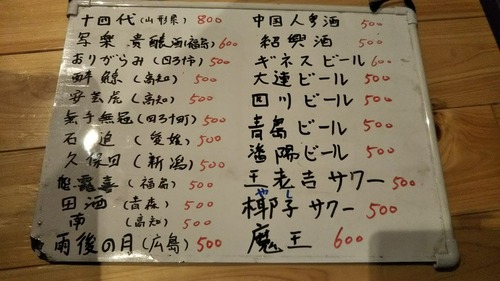 十四代(山形県) 800
写楽 貴醸酒(福島) 600
ありがらみ(四万十市) 500
酔鯨(高知) 500
安芸虎(高知) 500
無手無冠(四万十町) 500
石 追 (愛媛) 500
久保田(新潟) 500
飛露喜(福島) 500
田酒(青森) 500
南 (高知) 500
雨後の月(広島) 500
中国人参酒 500
紹興酒 500
ギネスビール 600
大連ビール 500
四川ビール 500
青島ビール 500
瀋陽ビール 500
王老吉サワー 500
やし
椰子サワー 500
魔王 600